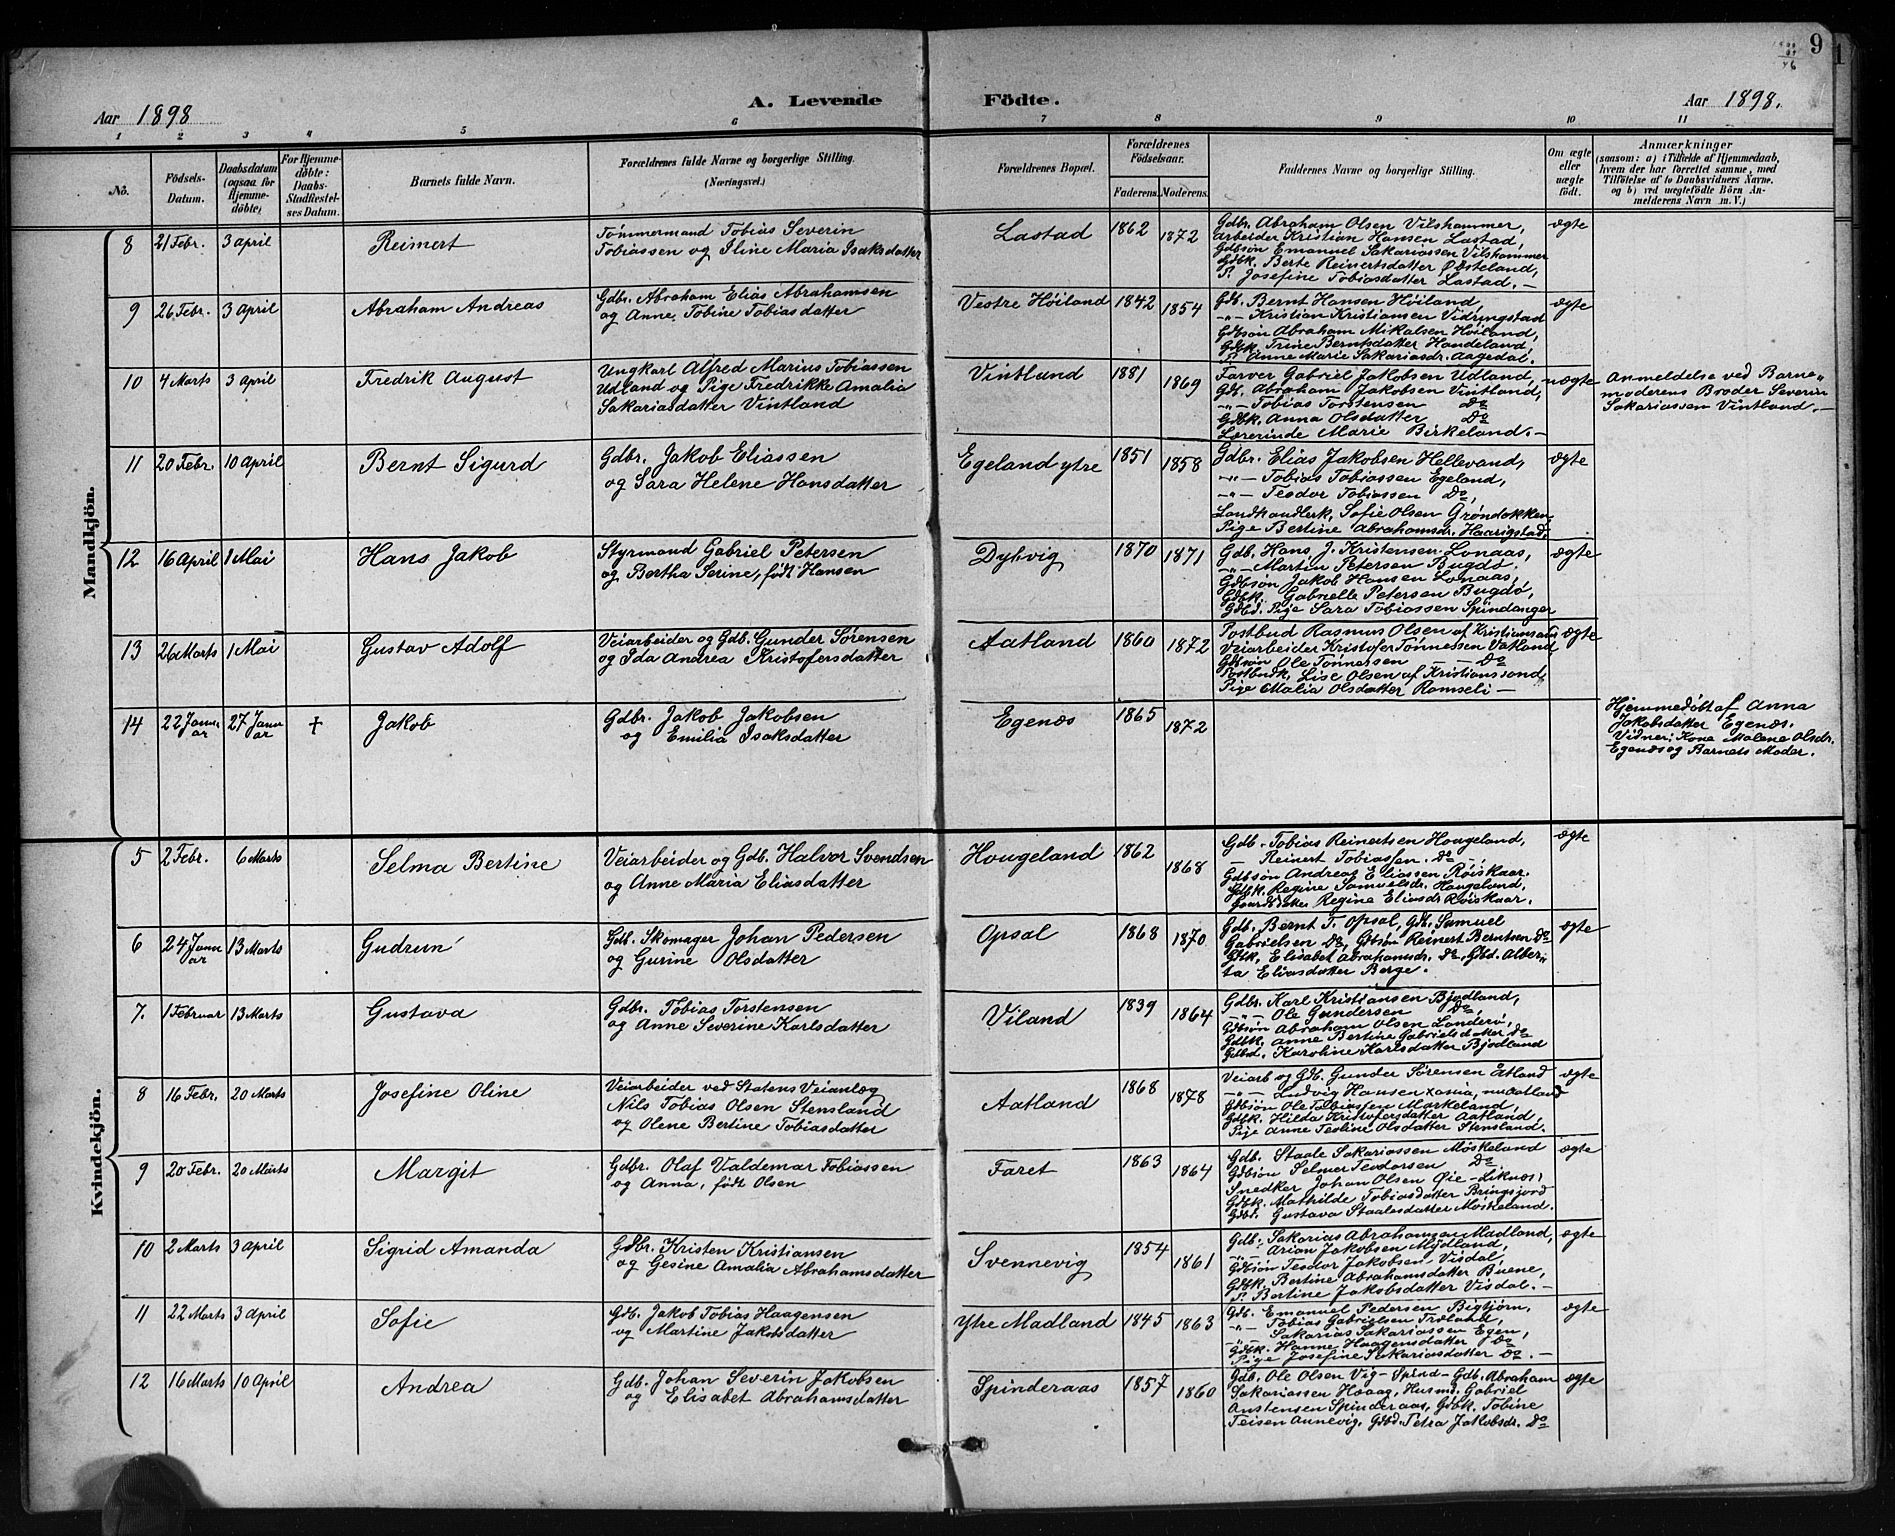 9
Aar 1898
A. Levende
Födte.
Aar 1898.
1 2 3 4 5 6 7 8 9 10 11
No.
Födsels-Datum.
Daabsdatum (ogsaa for Hjemme-döbte)
For Hjemme-döbte: Daabs-Stadfæstel-ses Datum.
Barnets fulde Navn.
Forældrenes fulde Navne og borgerlige Stilling. (Næringsvei.)
Forældrenes Bopæl.
Forældrenes Födselsaar.
Faderens. Moderens.
Faddernes Navne og borgerlige Stilling.
Om ægte eller uægte födt.
Anmærkninger
(saasom: a) i Tilfælde af Hjemmedaab,
hvem der har forrettet samme, med
Tilföielse af to Daabsvidners Navne,
og b) ved uægtefödte Börn An-
melderens Navn m. V.)
Mandkjön.
8 21 Febr. 3 April Reimert
Tömmermand Tobias Severin
Tobiassen og Iline Maria Isaksdatter
Lastad 1862 1872
Gdbr. Abraham Olsen Vilshammer,
Arbeider Kristian Hansen Lastad,
Gdbsön Emanuel Sakariassen Vilshammer
Gdbk. Berte Reinertsdatter Øysteland,
P. Josefine Tobiasdatter Lastad. —
ægte
9 26 Febr. 3 April Abraham Andreas
Gdbr. Abraham Elias Abrahamsen
og Anne Tobine Tobiasdatter
Vestre Höiland 1842 1854
Gdb. Bernt Hansen Höiland,
-"- Kristian Kristiansen Vidringstad
Gdbsön Abraham Mikalsen Höiland,
Gdbk. Trine Berntsdatter Handeland,
P. Anne Marie Sakariasdr. Aagedal.
ægte
10 4 Marts 3 April Fredrik August
Ungkarl Alfred Marius Tobiassen
Udland og Pige Fredrikke Amalia
Sakariasdatter Vintland
Vintland 1881 1869
Farver Gabriel Jakobsen Udland,
Gdb. Abraham Jakobsen Vintland,
-"- Tobias Torstensen Do
Gdbk. Anna Olsdatter Do
Lærerinde Marie Birkeland. —
uægte
Anmeldelse ved Barne-
moderens Broder Severin
Sakariassen Vintland. —
11 20 Febr. 10 April Bernt Sigurd
Gdbr. Jakob Eliassen
og Sara Helene Hansdatter
Egeland ytre 1851 1858
Gdbr. Elias Jakobsen Hellevand,
-"- Tobias Tobiassen Egeland,
-"- Teodor Tobiassen Do,
Landhandlerk. Sofie Olsen Gröndokken
Pige Bertine Abrahamsdr. Haarigstad.
ægte
12 16 April 1 Mai Hans Jakob
Styrmand Gabriel Petersen
og Bertha Serine, födt Hansen
Dybvig 1870 1871
Gdb. Hans J. Kristensen Lonaas,
-"- Martin Petersen Bugdö.
Gdbsön Jakob Hansen Lonaas,
Gdbk. Gabrielle Petersen Bugdö,
Gdbd. Pige Sara Tobiassen Spindanger
ægte
13 26 Marts 1 Mai Gustav Adolf
Veiarbeider og Gdb. Gunder Sörensen
og Ida Andrea Kristofersdatter
Aatland 1860 1872
Postbud Rasmus Olsen af Kristianssand
Veiarbeider Kristofer Tönnessen Vatland,
Gdbsön Ole Tönnessen — Do
Postbudk. Lise Olsen af Kristianssand,
Pige Malia Olsdatter Romseli —
ægte
14 22 Januar 27 Januar + Jakob
Gdbr. Jakob Jakobsen
og Emilia Isaksdatter
Egenæs 1865 1872
Hjemmedöbt af Anna
Jakobsdatter Egenæs.
Vidner: Kone Malene Olsdr.
Egenæs og Barnets Moder.
Kvindekjön.
5 2 Febr. 6 Marts Selma Bertine
Veiarbeider og Gdb. Halvor Svendsen
og Anne Maria Eliasdatter
Hougeland 1862 1868
Gdb. Tobias Reinertsen Hougeland,
— Reinert Tobiassen. Do —
Gdbsön Andreas Eliassen Röiskaar.
Gdbk. Regine Samuelsdr. Hougeland,
Gaardsdatter Regine Eliasdr Röiskaar.
ægte
6 24 Januar 13 Marts Gudrun
Gdb. Skomager Johan Pedersen
og Gurine Olsdatter
Opsal 1868 1870
Gdb. Bernt T. Opsal, Gdb. Samuel
Gabrielsen Do, Gdbsön Reinert Berntsen Do
Gdbk. Elisabet Abrahamsdr. Do, Gbd. Alber-
ta Eliasdatter Berge.
ægte
7. 1 Februar 13 Marts Gustava
Gdbr. Tobias Torstensen
og Anne Severine Karlsdatter
Viland 1839 1864
Gdbr. Karl Kristiansen Bjodland,
-"- Ole Gundersen Do,
Gdbsön Abraham Olsen Landerö,
Gdbk. Anne Bertine Gabrielsdatter Do
Gdbd. Karoline Karlsdatter Bjodland
8 16 Febr. 20 Marts Josefine Oline
Veiarbeider ved Statens Veianlæg
Nils Tobias Olsen Stensland
og Olene Bertine Tobiasdatter
Aatland 1868 1878
Veiarb og Gdb. Gunder Sörensen Aatland
-"- Ludvig Hansen Xania, nu Aatland
Gdbsön Ole Tobiassen Markeland,
Gdbk. Hilda Kristofersdatter Aatland,
Pige Anne Teoline Olsdatter Stensland.
ægte
9 20 Febr. 20 Marts Margit
Gdbr. Olaf Valdemar Tobiassen
og Anna, födt Olsen
Faret 1863 1864
Gdb. Staale Sakariassen Möskeland
Gdbsön Selmer Teodorsen Do
Snedker Johan Olsen Øie - Liknæs,
Gdbk. Mathilde Tobiasdatter Bringsjord
Gdbd. Gustava Staalesdatter Möskeland.
ægte
10 2 Marts 3 April Sigrid Amanda
Gdbr. Kristen Kristiansen
og Gesine Amalia Abrahamsdatter
Svennevig 1854 1861
Gdb. Sakarias Abrahamsen Madland,
-"- Arian Jakobsen Mydland,
Gdbsön Teodor Jakobsen Visdal,
Gdbk. Bertine Abrahamsdatter Buene,
P. Bertine Jakobsdatter Visdal. —
ægte
11 22 Marts 3 April Sofie
Gdb. Jakob Tobias Haagensen
og Martine Jakobsdatter
Ytre Madland 1845 1863
Gdb. Emanuel Pedersen Bigtjörn,
-"- Tobias Gabrielsen Træland,
-"- Sakarias Sakariassen Egen,
Gdbk. Hanne Haagensdatter Do
Pige Josefine Sakariasdatter Do. —
ægte
12 16 Marts 10 April Andrea
Gdb. Johan Severin Jakobsen
og Elisabet Abrahamsdatter
Spinderaas 1857 1860
Gdb. Ole Olsen Vig - Spind - Gdb. Abraham
Sakariassen Haaag, Husmd. Gabriel
Anstensen Spinderaas, Gdbk. Tobine
Teisen Annevig, Gdbd. Petra Jakobsdr. Do
ægte